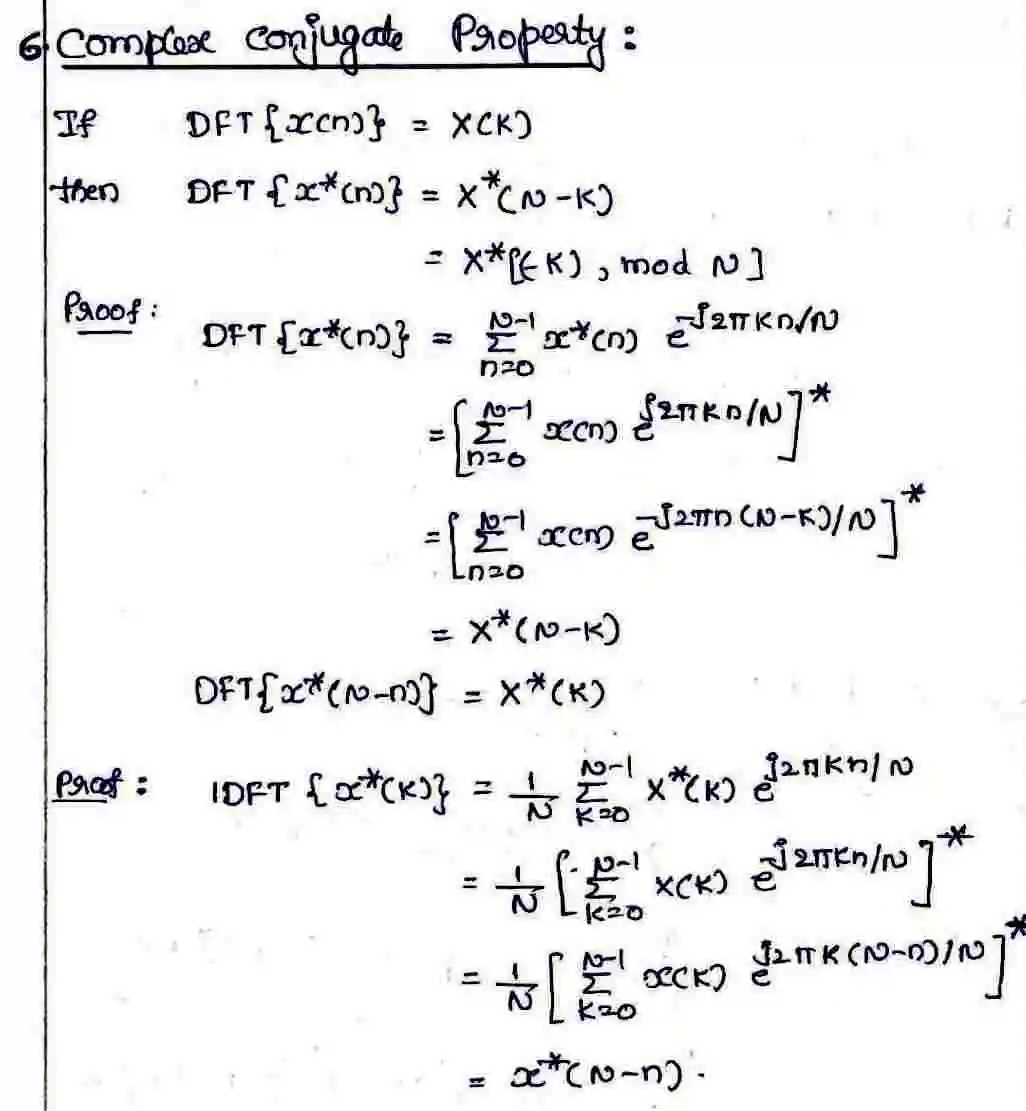 6) Complex conjugate Property :
If DFT {x(n)} = X(K)
then DFT {x*(n)} = X*(N-K)
= X*[(-K), mod N]
Proof :
DFT {x*(n)} = Σ_{n=0}^{N-1} x*(n) e^{-j2πKn/N}
= [Σ_{n=0}^{N-1} x(n) e^{j2πKn/N}]*
= [Σ_{n=0}^{N-1} x(n) e^{-j2πn(N-K)/N}]*
= X*(N-K)
DFT{x*(N-n)} = X*(K)
Proof : IDFT {x*(K)} = 1/N Σ_{K=0}^{N-1} X*(K) e^{j2πKn/N}
= 1/N [Σ_{K=0}^{N-1} X(K) e^{-j2πKn/N}]*
= 1/N [Σ_{K=0}^{N-1} x(K) e^{j2πK(N-n)/N}]*
= x*(N-n).